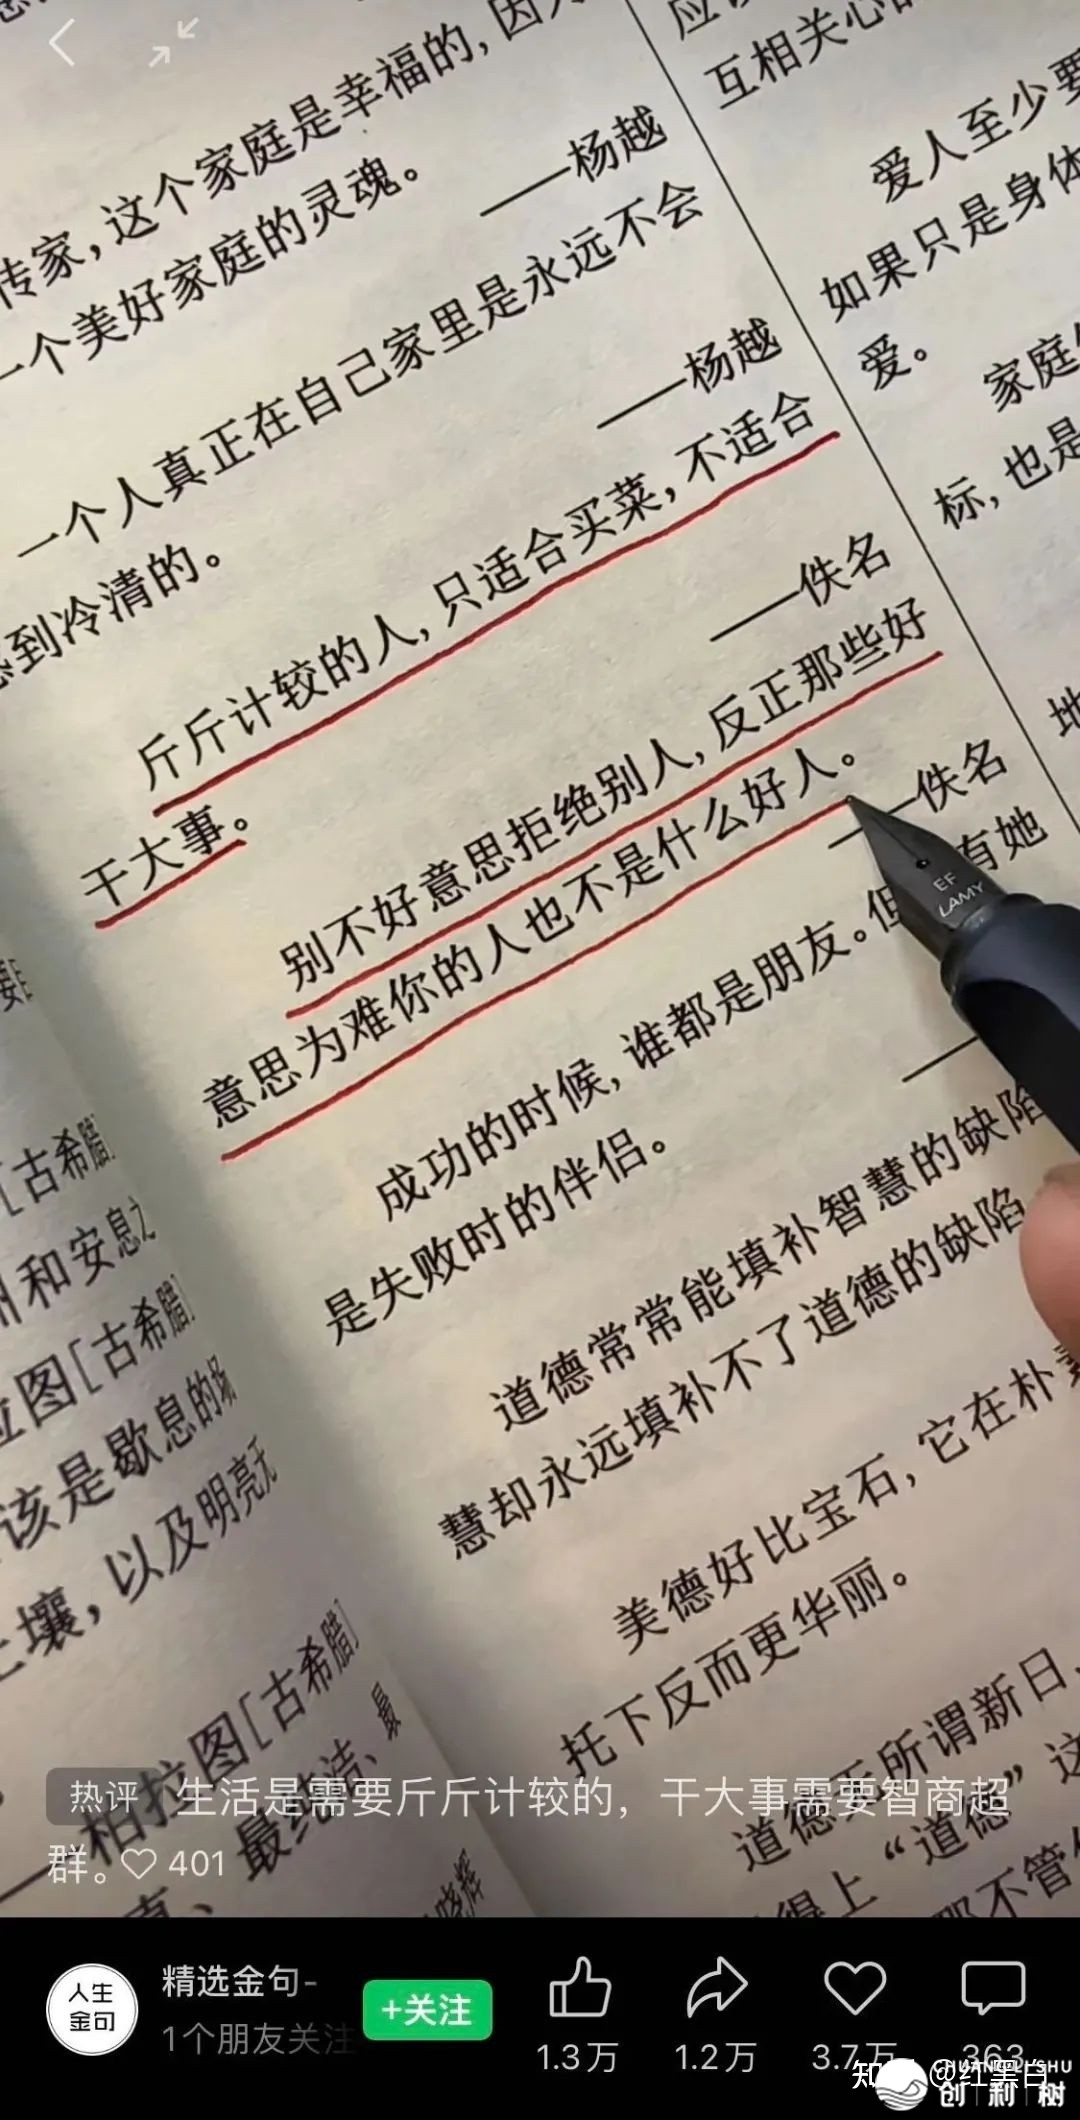 应该
互相关心的
爱人至少要
如果只是身体
爱。
家庭
标，也是
地
传家，这个家庭是幸福的，因为
一个美好家庭的灵魂。
——杨越
一个人真正在自己家里是永远不会
感到冷清的。
——杨越
斤斤计较的人，只适合买菜，不适合
干大事。
——佚名
别不好意思拒绝别人，反正那些好
意思为难你的人也不是什么好人。
——佚名
成功的时候，谁都是朋友。但 有她
是失败时的伴侣。
道德常常能填补智慧的缺陷
慧却永远填补不了道德的缺陷
美德好比宝石，它在朴素
托下反而更华丽。
道德 所谓新日、
得上“道德”这
那不管
[古希腊]
和安息之
拉图[古希腊]
该是歇息的场
土壤，以及明亮无
——柏拉图[古希腊]
最纯洁、最
热评 生活是需要斤斤计较的，干大事需要智商超
群。 401
人生
金句
精选金句-
1个朋友关注
+关注
1.3万
1.2万
3.7万
363
@红黑白
CHUANGLISHU
创利树